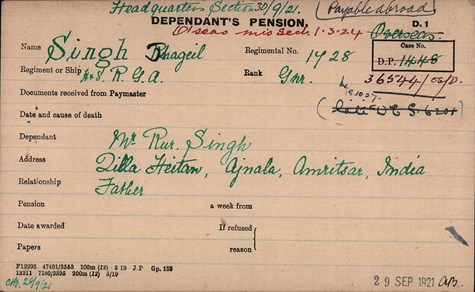 Headquarters Section 30/9/21. (Payable abroad)
DEPENDANT'S PENSION, D. 1
O'seas mis Sech 1.3.24 Overseas
Name Singh Bhageil Regimental No. 1728 Case No.
D.P. 1448
Regiment or Ship H&S. R.G.A. Rank Gnr. 36544/05/D.
Documents received from Paymaster
Date and cause of death
Dependant Mr Rur. Singh
Address Zilla Heitan, Ajnala, Amritsar, India
Relationship Father
Pension a week from
Date awarded If refused
Papers reason
F12293 47401/2553 100m (12) 3 19 J.P Gp. 159
13311 7150/2395 200m (12) 5/19
28/9/21 29 SEP 1921